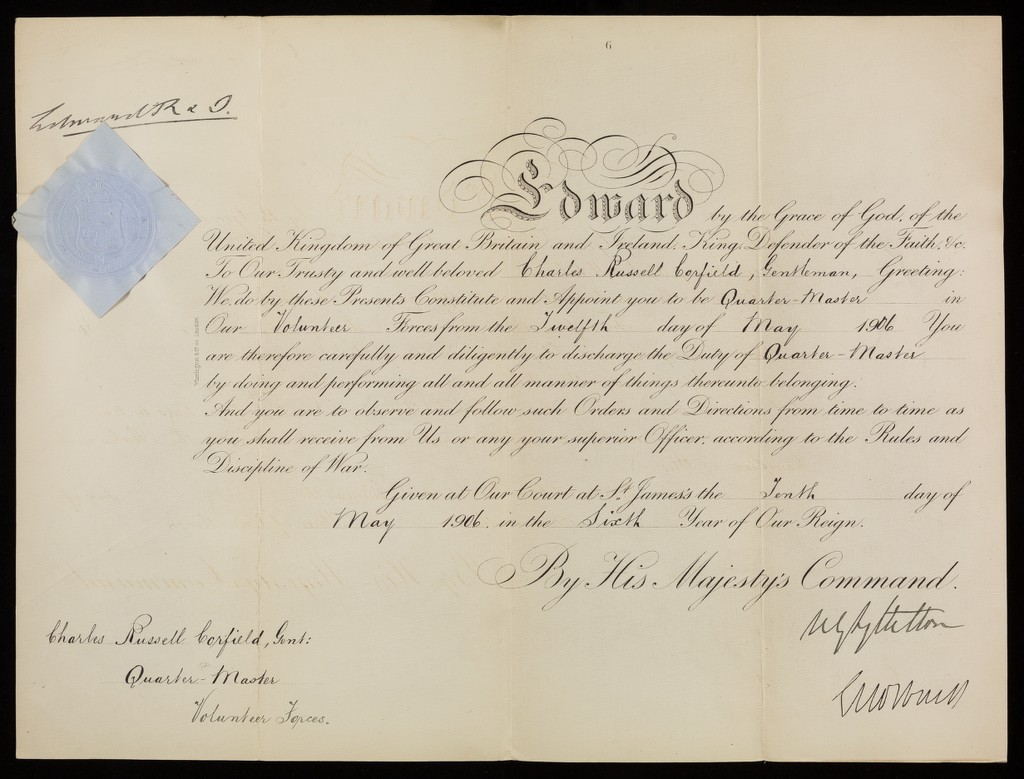 6
Edward R & I.
Edward by the Grace of God, of the
United Kingdom of Great Britain and Ireland, King, Defender of the Faith, &c.
To Our Trusty and well beloved Charles Russell Corfield, Gentleman, Greeting:
We do by these Presents Constitute and Appoint you to be Quarter-Master in
Our Volunteer Forces from the Twelfth day of May 1906 You
are therefore carefully and diligently to discharge the Duty of Quarter-Master
by doing and performing all and all manner of things thereunto belonging.
And you are to observe and follow such Orders and Directions from time to time as
you shall receive from Us or any your superior Officer, according to the Rules and
Discipline of War.
Given at Our Court at St. James's the Tenth day of
May 1906. in the Sixth Year of Our Reign.
By His Majesty's Command.
Charles Russell Corfield, Gent:
Quarter-Master
Volunteer Forces.